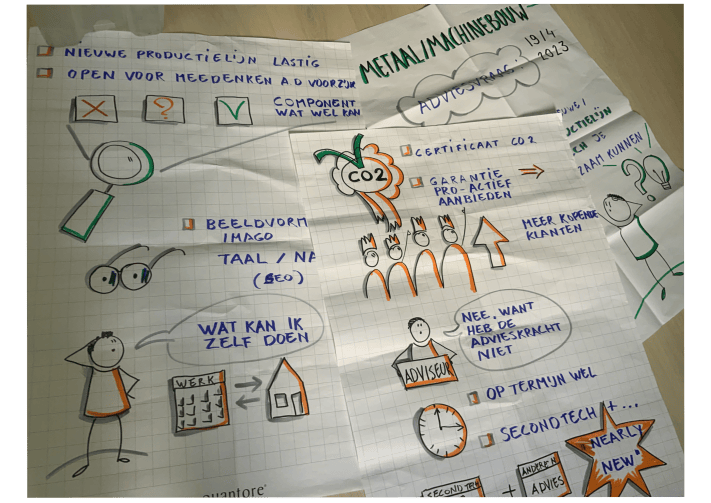 NIEUWE PRODUCTIELIJN LASTIG
OPEN VOOR MEEDENKEN A.D VOORZIJDE
X ? V
COMPONENT
WAT WEL KAN
BEELDVORM
IMAGO
TAAL / NA
(SEO)
WAT KAN IK
ZELF DOEN
WERK
quantore
METAAL/MACHINEBOUW
19/4
2023
ADVIESVRAAG:
JE
ZAAM KUNNEN
?
CO2
CERTIFICAAT CO2
GARANTIE
PRO-ACTIEF
AANBIEDEN
MEER KOPENDE
KLANTEN
ADVISEUR
NEE, WANT
HEB DE
ADVIESKRACHT
NIET
OP TERMIJN WEL
SECONDTECH + ...
SECOND TE
+
ANDERE N
ADVIES
"NEARLY
NEW"